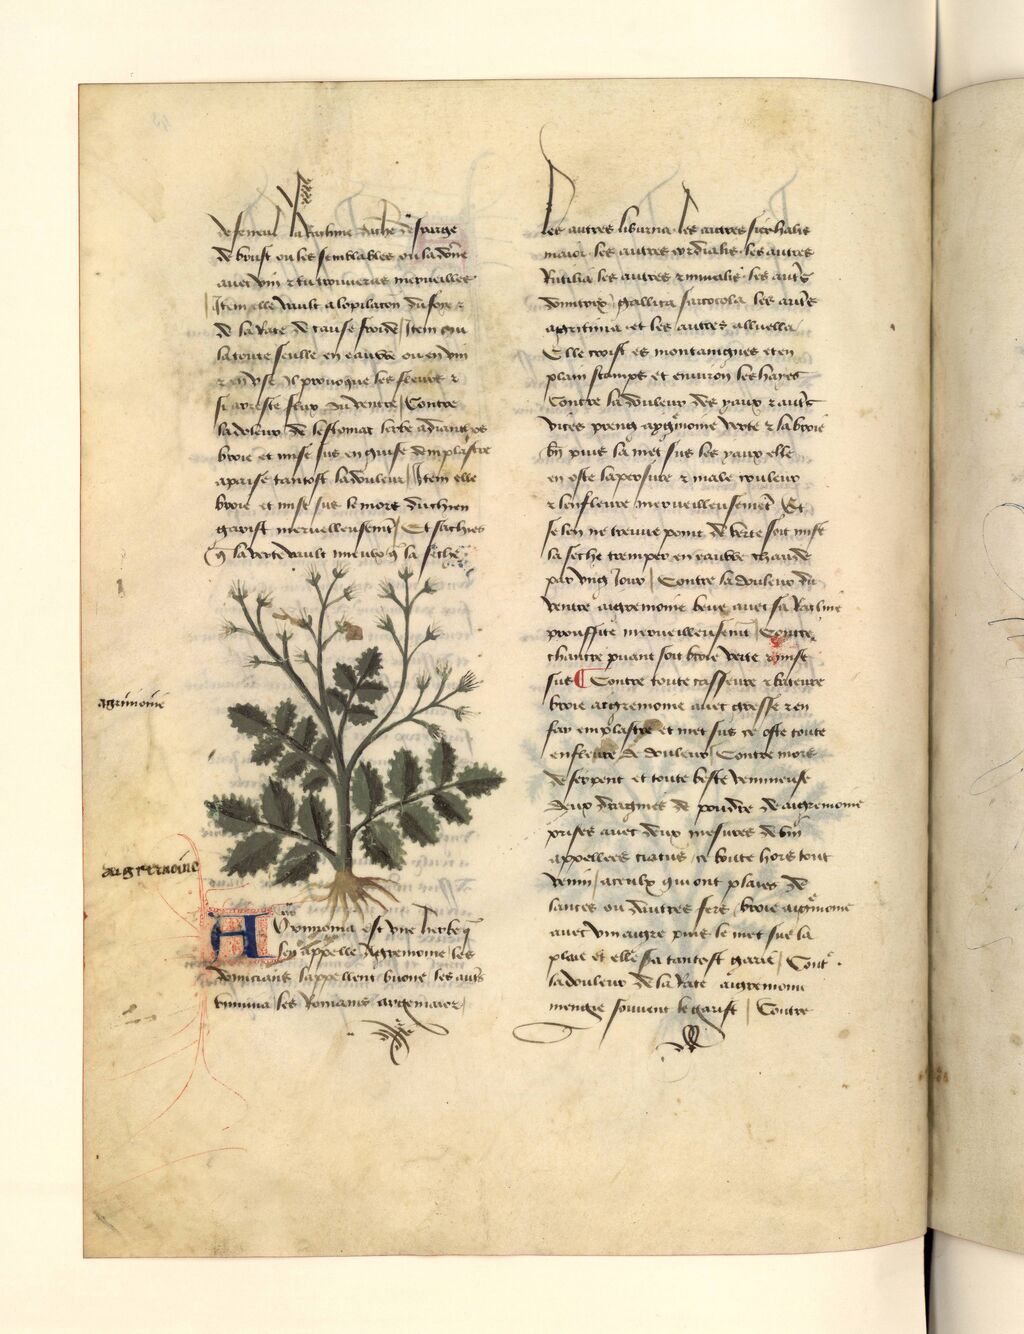 de seneul la Racine dache de sauge
de boust ou les semblables ou la done
avec vin et tu trouveras merveilles
Item elle vault a lopilacion du foye et
de la Rate de cause froide Item qui
la toute seulle en eauwe ou en vin
et en use Il provoque les fleurs et
si arreste flux du ventre Contre
la douleur de lestomac lerbe adiantos
broie et mise sus en guise demplastre
apaise tantost la douleur Item elle
broie et mise sus le mors du chien
garist merveilleusemt Et sachies
q la verte vault mieulx q la seche
agrimoine
aigremoine
Agrimonia est une herbe q
lon appelle Agremoine les
appellent les aut
les Romains argemaior
Les autres liburna les autres
maior les autres cordialis les autres
Rutilia les autres les aut
gallica sarcocola les aut
agritima et les autres alluella
Elle croist es montaignes et en
plain champs et environ les hayes
Contre la douleur des yaux et aut
vices preng aygmoine verte et la broie
bn puis la met sus les yaux elle
en oste la et male couleur
et lenfleure merveilleusemt Et
se len ne treuve point de verte soit mise
la seche tremper en eauwe chaude
par ung Jour Contre la douleur du
ventre aigremoine beue avec sa Racine
prouffite merveilleusemt Contre
chancre puant soit broie verte et mise
sus Contre toute casseure et bateure
broie aigremoine avec gresse et en
fay emplastre et met sus ce oste toute
enfleure de douleur Contre mors
de serpent et toute beste venimeuse
deux dragmes de pouldre de aigremoine
prises avec deux mesures de vin
appellees ciatus ce boute hors tout
venin a ceulx qui ont plaies de
lances ou dautres fers broie aigmoine
avec vin aigre puis le met sur la
plaie et elle sa tantost garie Cont
la douleur de la Rate aigremoine
mengee souvent le garist Contre